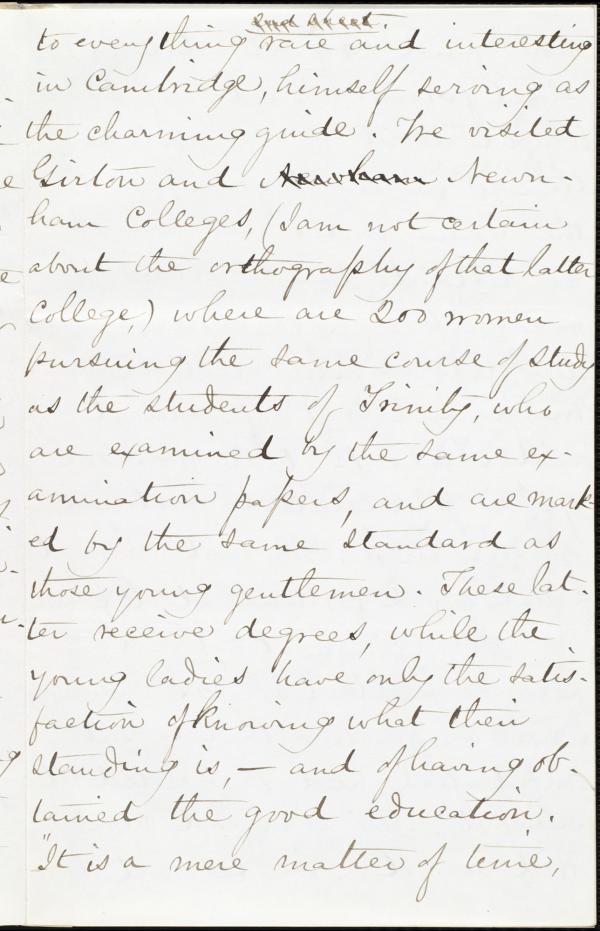 2nd Sheet.
to everything rare and interesting
in Cambridge, himself serving as
the charming guide. We visited
Girton and Newn-
ham Colleges, (I am not certain
about the orthography of that latter
College,) where are 200 women
pursuing the same course of study
as the students of Trinity, who
are examined by the same ex-
amination papers, and are mark-
ed by the same standard as
those young gentlemen. These lat-
ter receive degrees, while the
young ladies have only the satis-
faction of knowing what their
standing is, — and of having ob-
tained the good education.
"It is a mere matter of time,